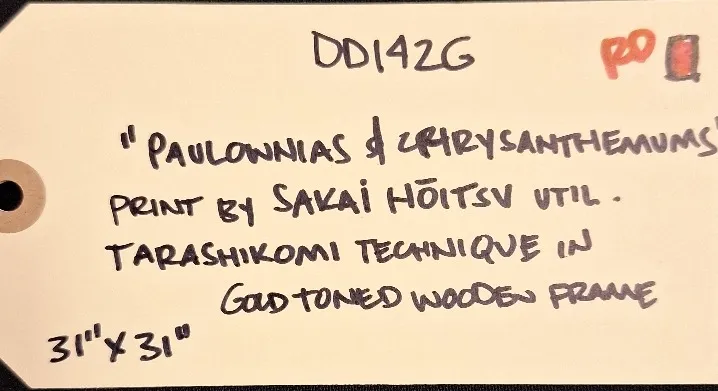 DD142G RO
"PAULOWNIAS & CHRYSANTHEMUMS"
PRINT BY SAKAI HŌITSU UTIL.
TARASHIKOMI TECHNIQUE IN
GOLD TONED WOODEN FRAME
31" X 31"